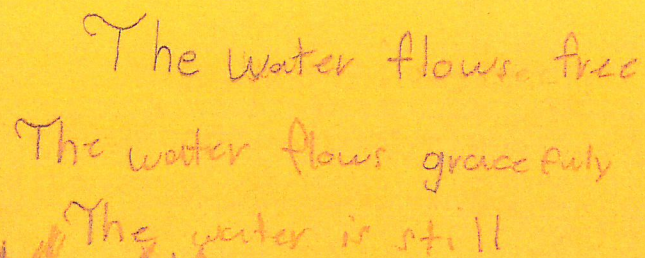 The water flows free
The water flows gracefuly
The water is still